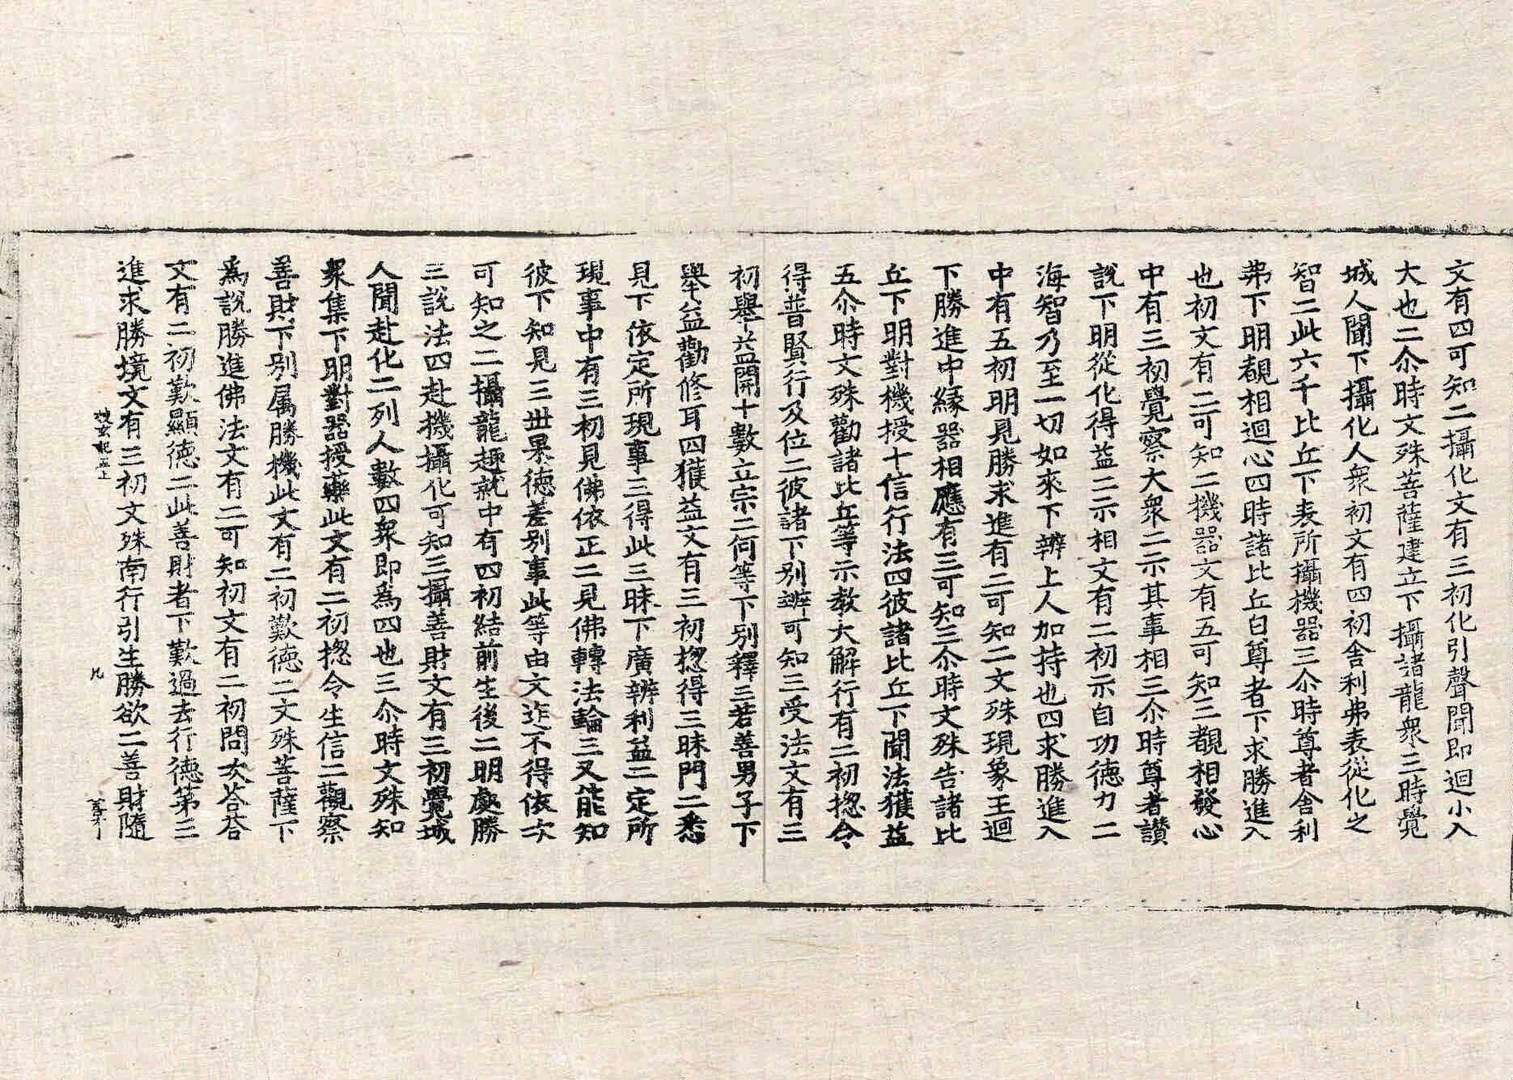 文有四可知二攝化文有三初化引聲聞即迴小入
大也二尒時文殊菩薩建立下攝諸龍衆三時覺
城人聞下攝化人衆初文有四初舍利弗表從化之
智二此六千比丘下表所攝機器三尒時尊者舍利
弗下明覩相迴心四時諸比丘白尊者下求勝進入
也初文有二可知二機器文有五可知三覩相發心
中有三初覺察大衆二示其事相三尒時尊者讃
說下明從化得益二示相文有二初示自功德力二
海智乃至一切如來下辨上人加持也四求勝進入
中有五初明見勝求進有二可知二文殊現象王迴
下勝進中緣器相應有三可知三尒時文殊告諸比
丘下明對機授十信行法四彼諸比丘下聞法獲益
五尒時文殊勸諸比丘等示教大解行有二初揔令
得普賢行及位二彼諸下別辨可知三受法文有三
初舉益開十數立宗二何等下別釋三若善男子下
舉益勸修耳四獲益文有三初揔得三昧門二悉
見下依定所現事三得此三昧下廣辨利益二定所
現事中有三初見佛依正二見佛轉法輪三又能知
彼下知見三世果德差別事此等由文迮不得依次
可知之二攝龍趣就中有四初結前生後二明處勝
三說法四赴機攝化可知三攝善財文有三初覺城
人聞赴化二列人數四衆即為四也三尒時文殊知
衆集下明對器授藥此文有二初揔令生信二觀察
善財下別属勝機此文有二初歎德二文殊菩薩下
為說勝進佛法文有二可知初文有二初問次荅荅
文有二初歎顯德二此善財者下歎過去行德第三
進求勝境文有三初文殊南行引生勝欲二善財隨